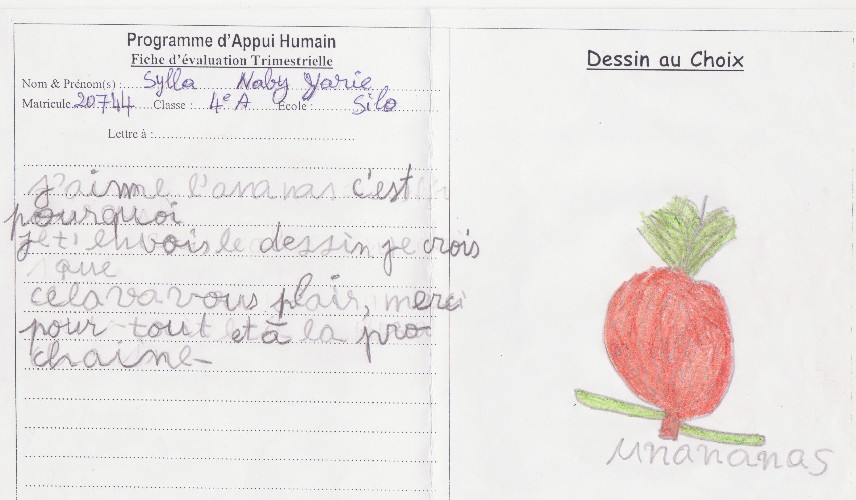 Programme d'Appui Humain
Fiche d'évaluation Trimestrielle
Nom & Prénom(s) : Sylla Naby Yarie
Matricule 20744 Classe : 4e A Ecole : Silo
Lettre à :
j'aime l'ananas c'est
pourquoi
je t'envois le dessin je crois
que
cela va vous plair, merci
pour tout et à la pro
chaine-
Dessin au Choix
unananas